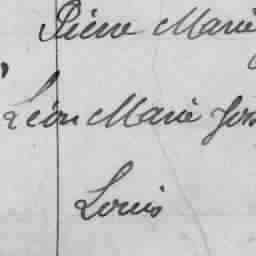 Pierre Marie
Léon Marie Jos
Louis